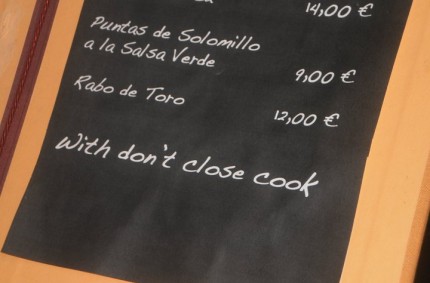 14,00 €
Puntas de Solomillo
a la Salsa Verde
9,00 €
Rabo de Toro
12,00 €
With don't close cook